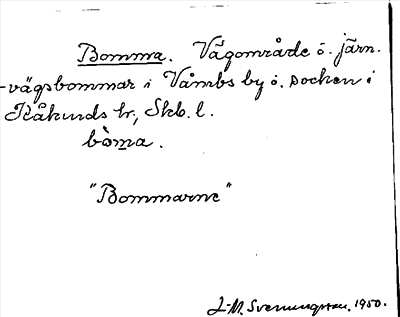 Bomma. Vägområde ö. järn-
-vägsbommar i Våmbs by o. socken i
Kåkinds hr, Skb. l.
bòma.
"Bommarne"
J-M. Svenungsson. 1950.